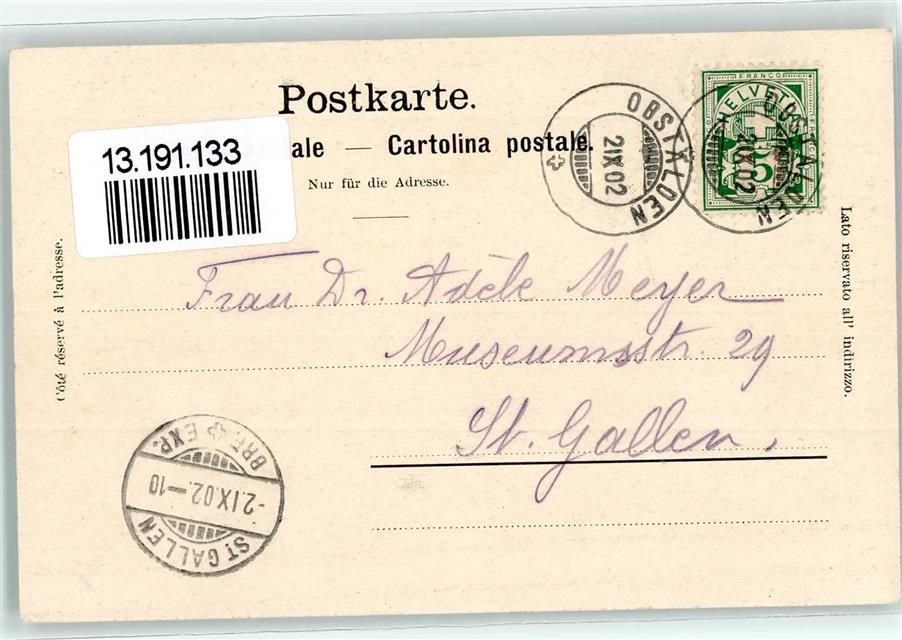 Postkarte.
13.191.133
ale — Cartolina postale.
Nur für die Adresse.
OBSTALDEN
2 IX 02
OBSTALDEN
IX 02
FRANCO
HELVETIA
5
Côté réservé à l'adresse.
Lato riservato all' indirizzo.
Frau Dr. Adèle Meyer
Museumsstr. 29
St. Gallen.
BRF. EXP.
-2.IX.02.-10
ST GALLEN